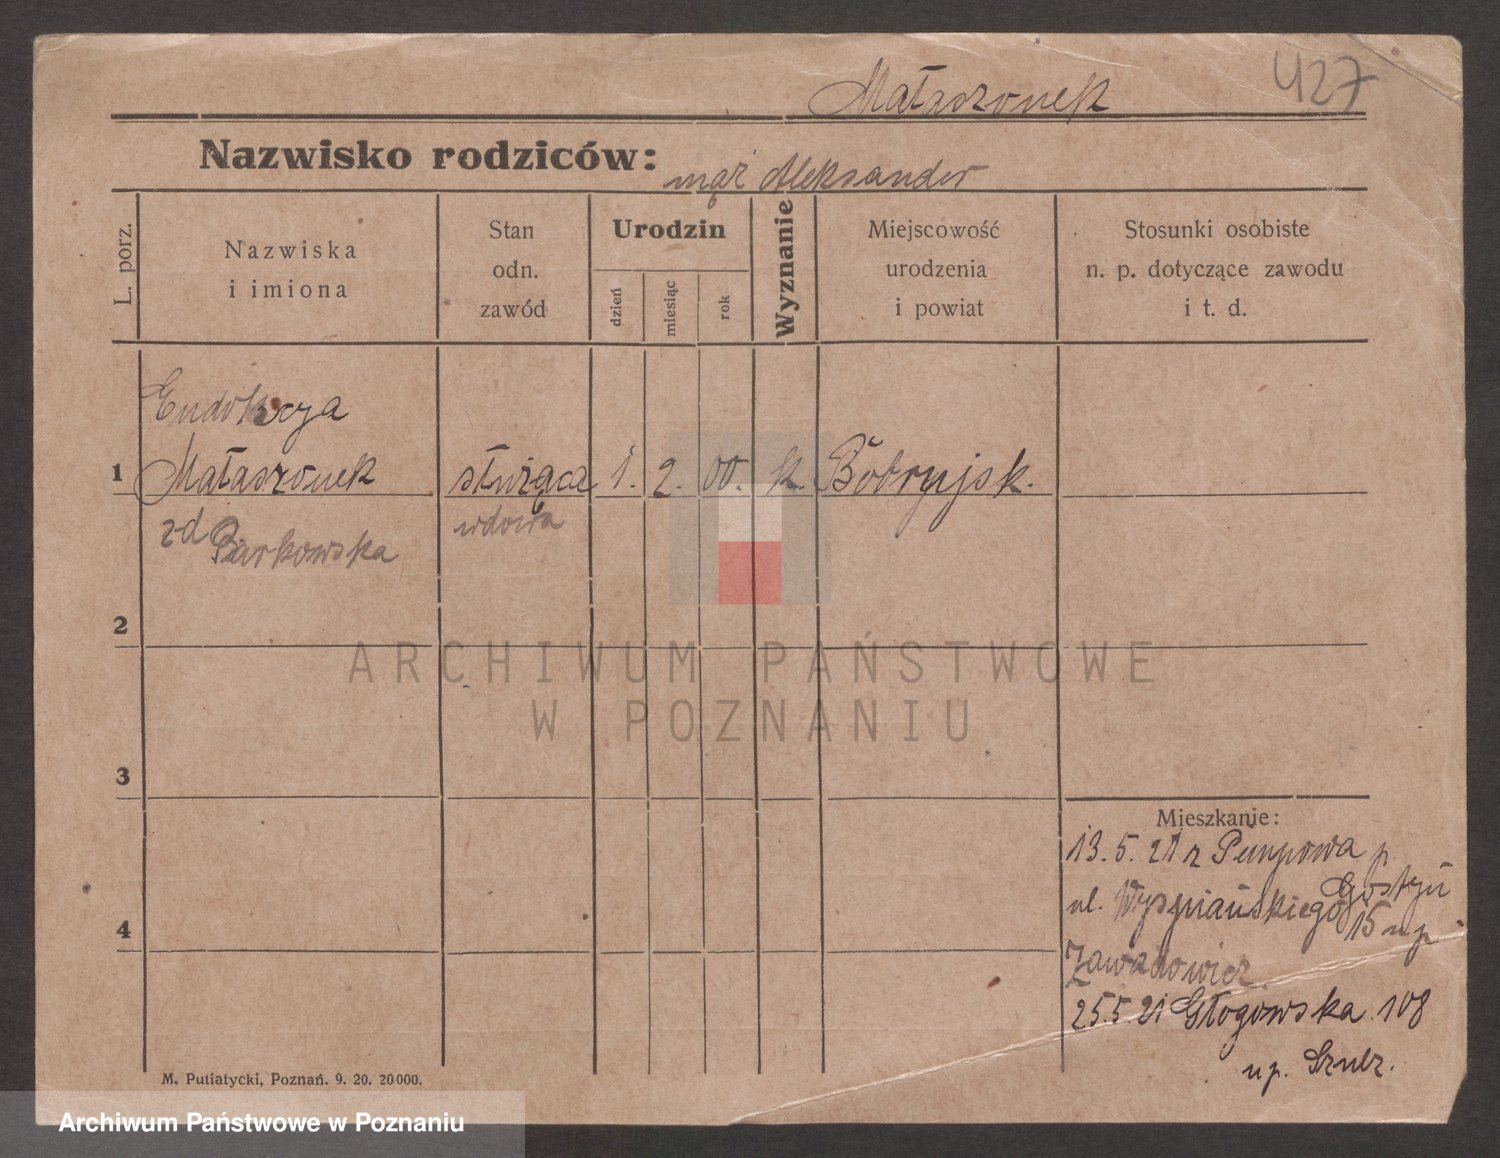 Mataszonek
427
Nazwisko rodziców:
mąż Aleksander
L. porz.
Nazwiska
i imiona
Stan
odn.
zawód
Urodzin
dzień
miesiąc
rok
Wyznanie
Miejscowość
urodzenia
i powiat
Stosunki osobiste
n. p. dotyczące zawodu
i t. d.
Eudokcya
1 Mataszonek służąca 1. 2. 00. k. Bobrujsk.
z d Parkowska
wdowa
2
3
4
Mieszkanie:
13. 5. 21 z Pempowa p.
Gostyń
ul. Wyspiańskiego 15 u p
Zawadowicz
25.5.21 Głogowska 108
u p. Szulz.
M. Putiatycki, Poznań. 9. 20. 20000.
ARCHIWUM PAŃSTWOWE
W POZNANIU
Archiwum Państwowe w Poznaniu